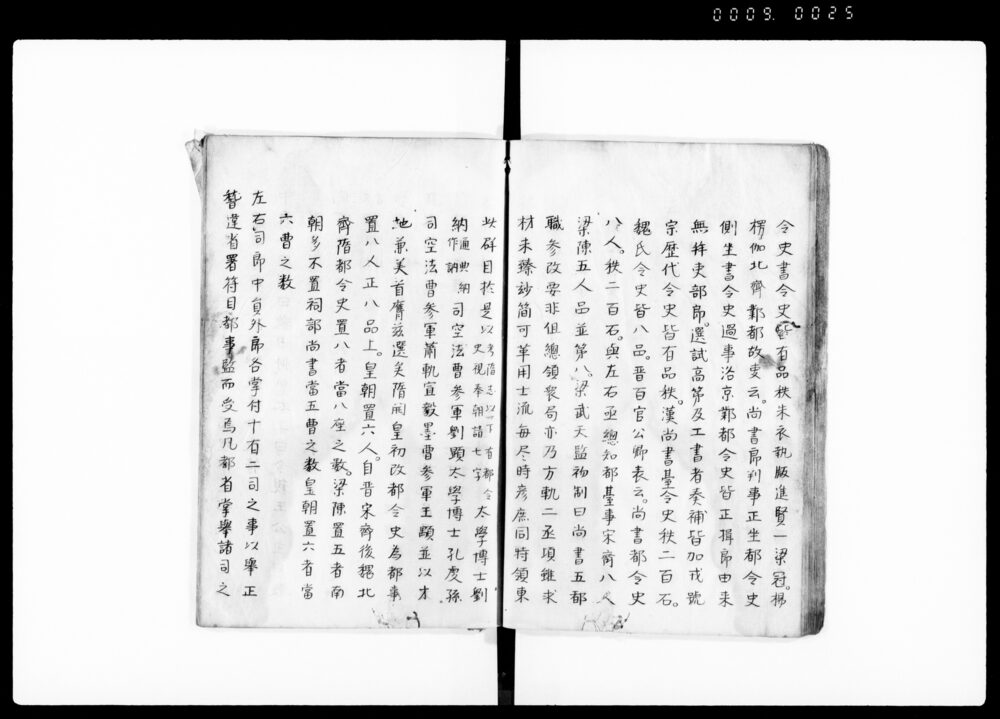 0009. 0025
令史書令史皆有品秩朱衣執版進賢一梁冠。楊
楞伽北齊鄴都故叓云。尚書郎判事正坐都令史
側坐書令史過事洛京鄴都令史皆正揖郎由来
無拜吏部郎。選試高第及工書者奏補皆加戎號
宗歴代令史皆有品秩。漢尚書臺令史秩二百石。
魏氏令史皆八品。晋百官公卿表云。尚書都令史
八人。秩二百石。與左右丞總知都臺事宋齊八人
梁陳五人品並第八。梁武天監初制曰尚書五都
職参改要非但總領衆局亦乃方軌二丞項雖求
材未臻妙簡可革用士流每尽時彦庶同持領東
此群目於是以考隋志以下有都令史視奉朝請七字太學博士劉
納通典納作訥司空法曹参軍劉顕太學博士孔虔孫
司空法曹参軍蕭軌宣毅墨曹参軍王顒並以才
地兼美首膺茲選矣隋開皇初改都令史為都事
置八人正八品上。皇朝置六人。自晋宋齊後魏北
齊隋都令史置八者當八座之数。梁陳置五者南
朝多不置祠部尚書當五曹之数皇朝置六者當
六曹之数
左右司郎中員外郎各掌付十有二司之事以舉正
稽違省署符目都事監而受焉凡都省掌舉諸司之